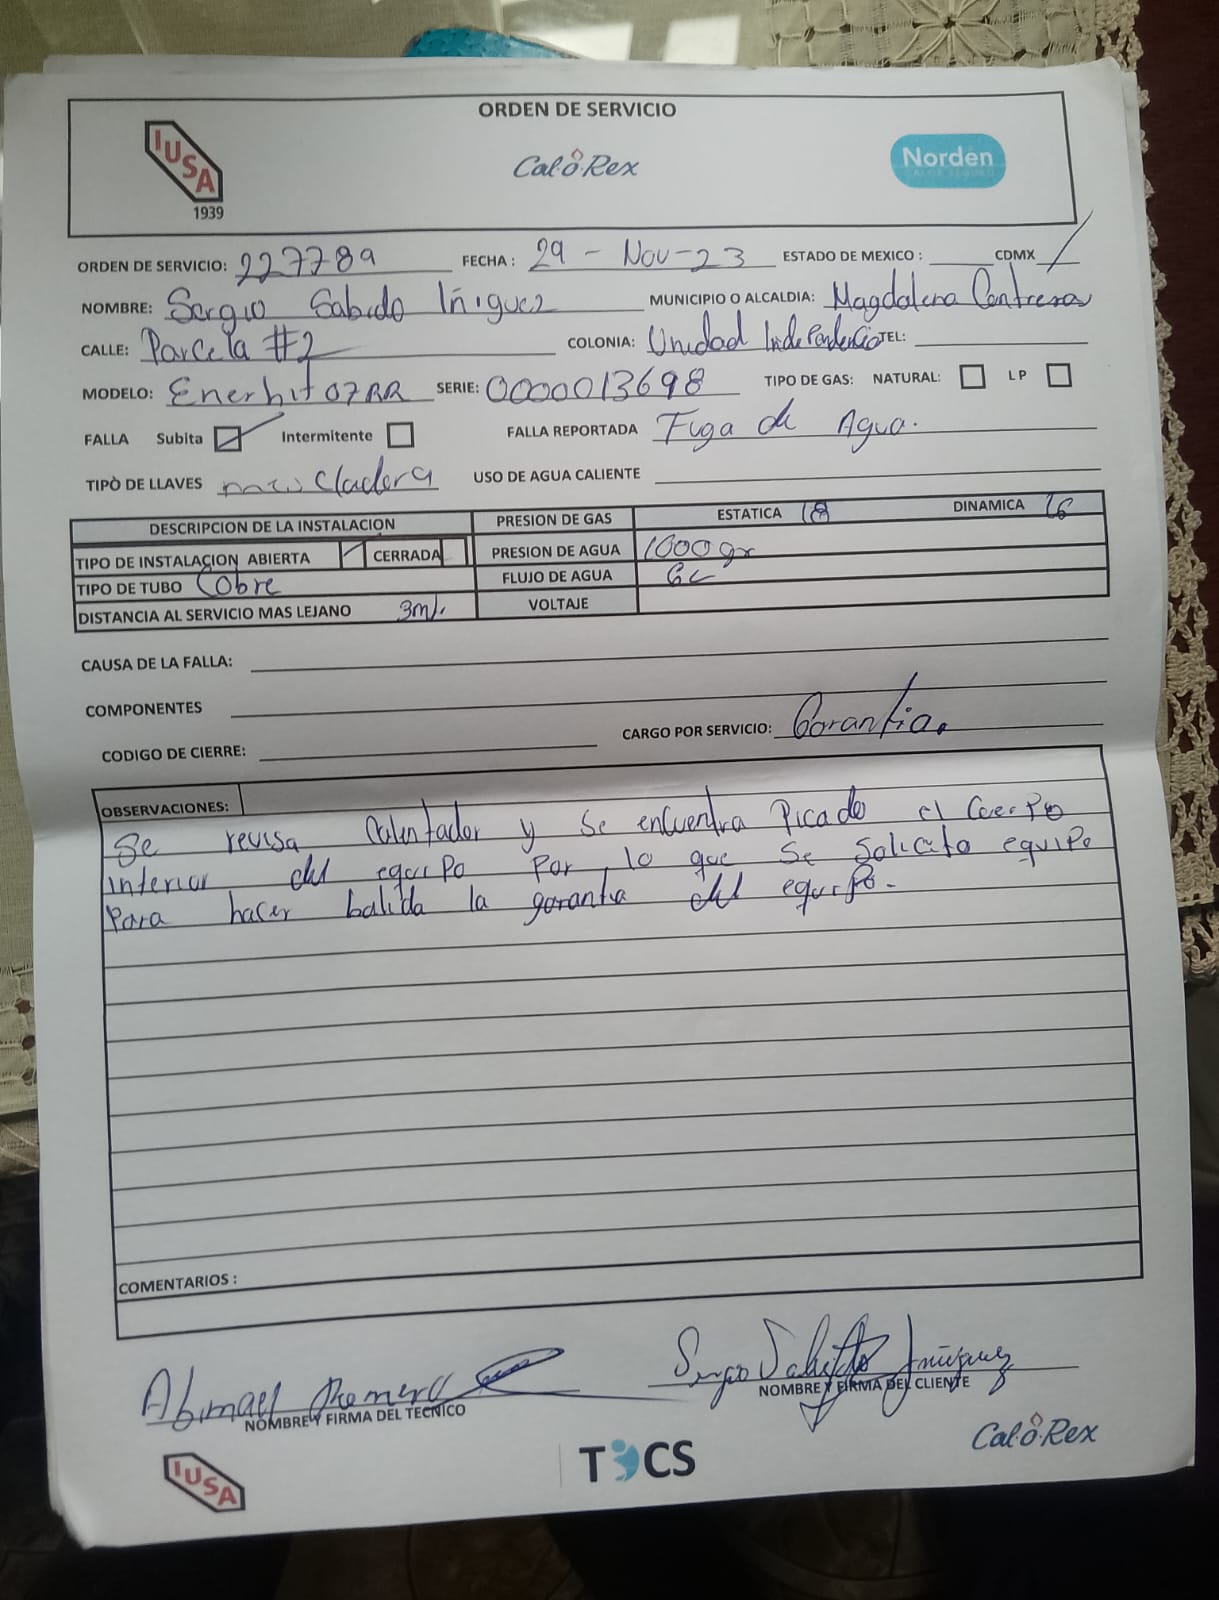 ORDEN DE SERVICIO
IUSA
1939
Cal-o-Rex
Norden
CALOR SEGURO
ORDEN DE SERVICIO: 227789 FECHA : 29 - Nov - 23 ESTADO DE MEXICO : CDMX /
NOMBRE: Sergio Sabido Iñiguez MUNICIPIO O ALCALDIA: Magdalena Contreras
CALLE: Parcela #2 COLONIA: Unidad Independencia TEL:
MODELO: Enerhit 07RR SERIE: 0000013698 TIPO DE GAS: NATURAL: LP
FALLA Subita Intermitente FALLA REPORTADA Fuga de Agua.
TIPÒ DE LLAVES mezcladora USO DE AGUA CALIENTE
DESCRIPCION DE LA INSTALACION PRESION DE GAS ESTATICA 18 DINAMICA 16
TIPO DE INSTALACION ABIERTA CERRADA PRESION DE AGUA 1000 gr
TIPO DE TUBO Cobre FLUJO DE AGUA 6L
DISTANCIA AL SERVICIO MAS LEJANO 3m/. VOLTAJE
CAUSA DE LA FALLA:
COMPONENTES
CODIGO DE CIERRE: CARGO POR SERVICIO: Garantia.
OBSERVACIONES:
Se revisa Calentador y se encuentra Picado el Cuerpo
interior del equipo Por lo que se Solicito equipo
Para hacer balida la garantia del equipo.
COMENTARIOS :
Abimael Romero
NOMBRE Y FIRMA DEL TECNICO
Sergio Sabido Iñiguez
NOMBRE Y FIRMA DEL CLIENTE
IUSA
TICS
Cal-o-Rex